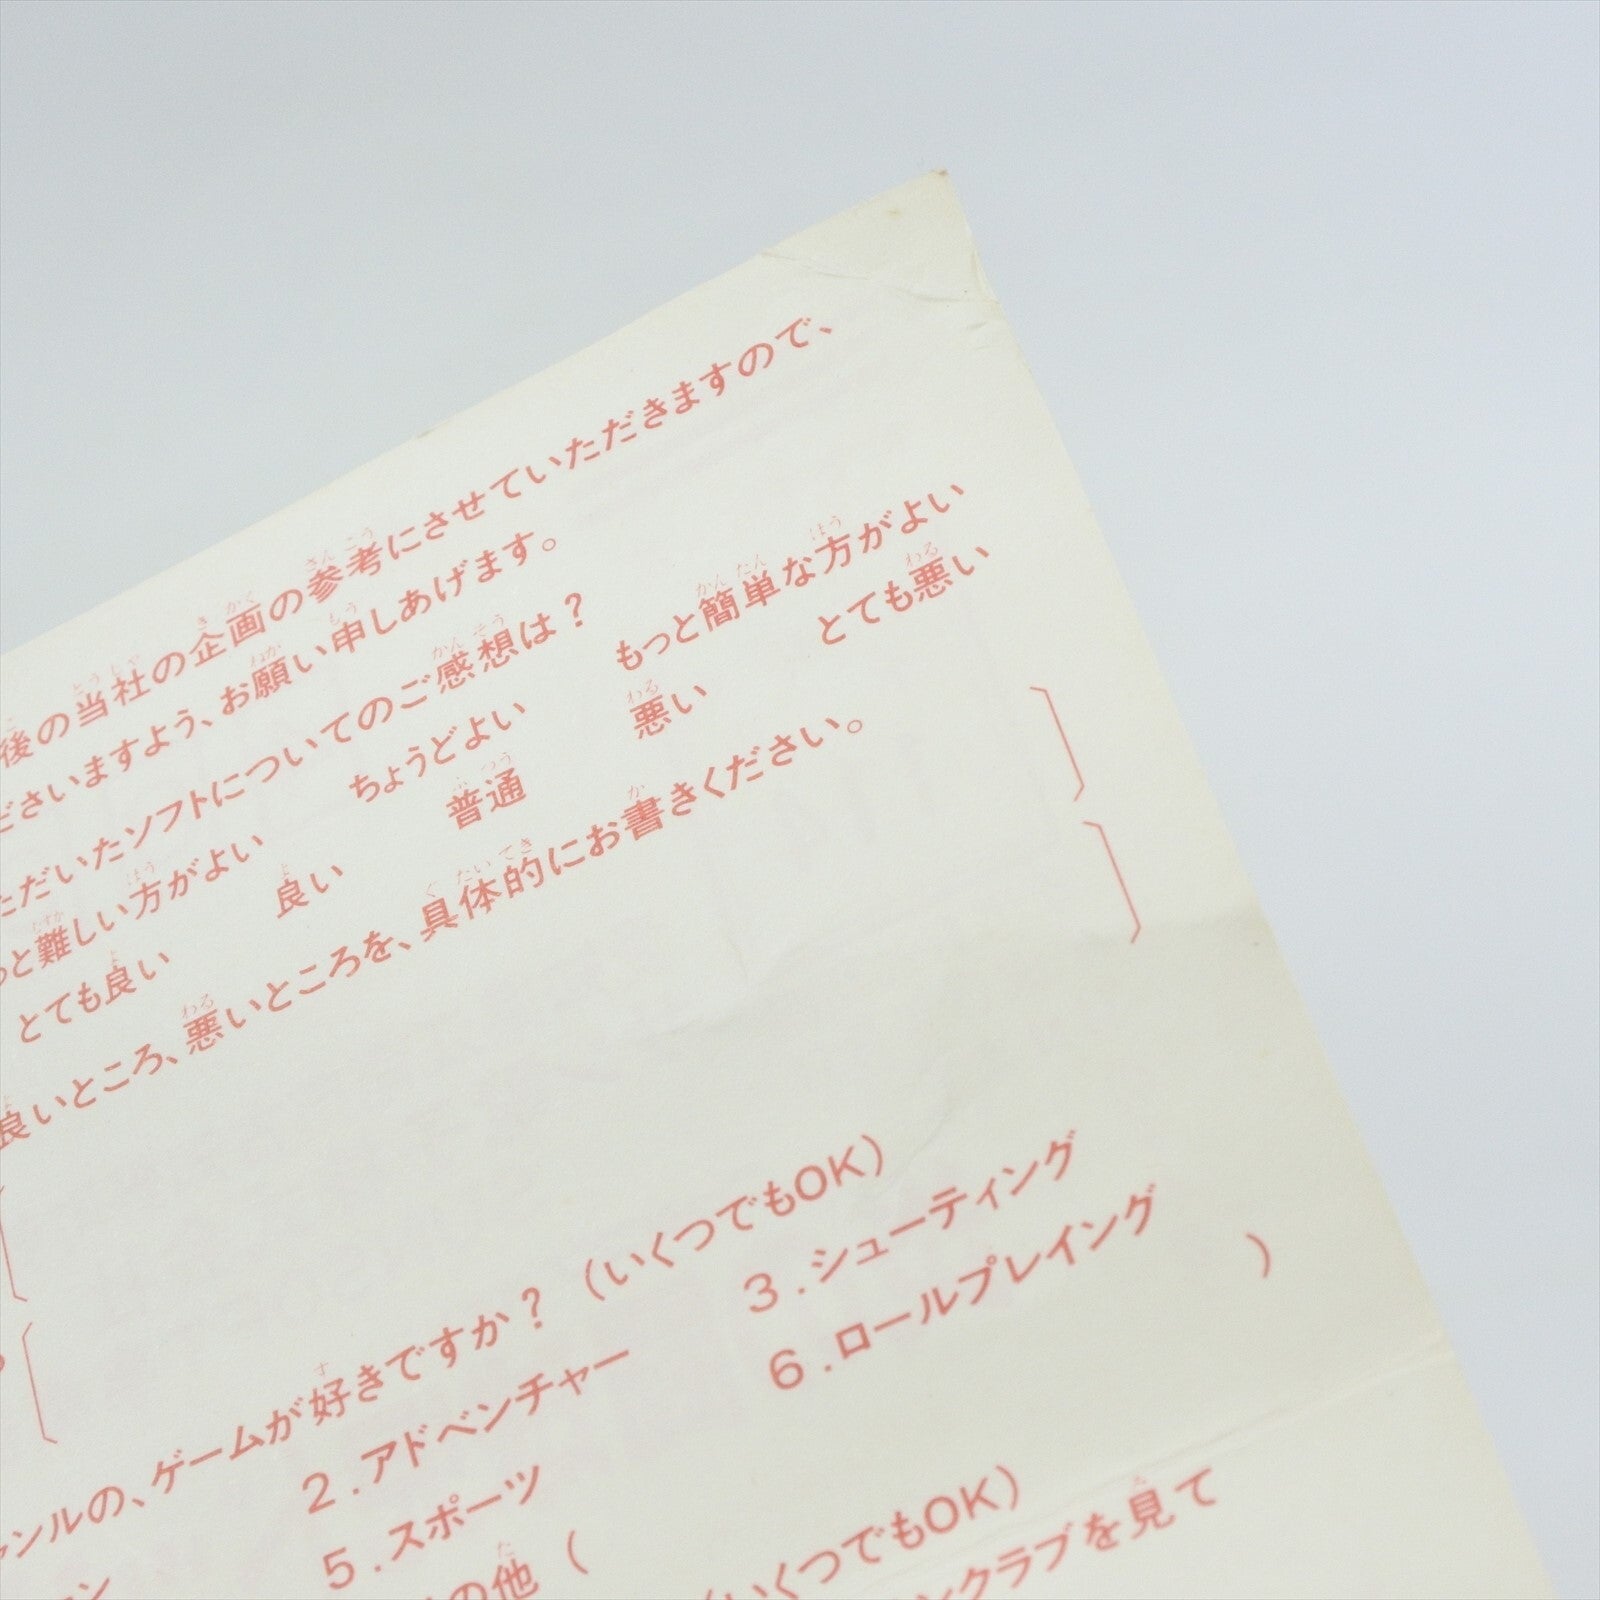 後の当社の企画の参考にさせていただきますので、
ださいますよう、お願い申しあげます。
ただいたソフトについてのご感想は？
っと難しい方がよい ちょうどよい もっと簡単な方がよい
とても良い 良い 普通 悪い とても悪い
良いところ、悪いところを、具体的にお書きください。
ャンルの、ゲームが好きですか？（いくつでもOK）
2.アドベンチャー 3.シューティング
ン 5.スポーツ 6.ロールプレイング
の他（ ）
（いくつでもOK）
ンクラブを見て